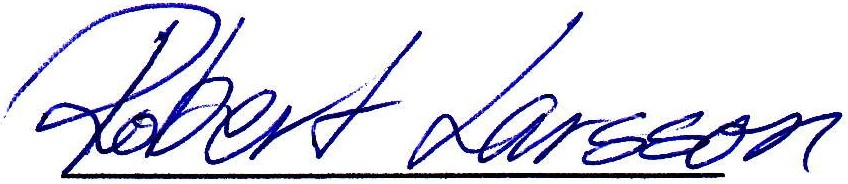 Robert Larsson